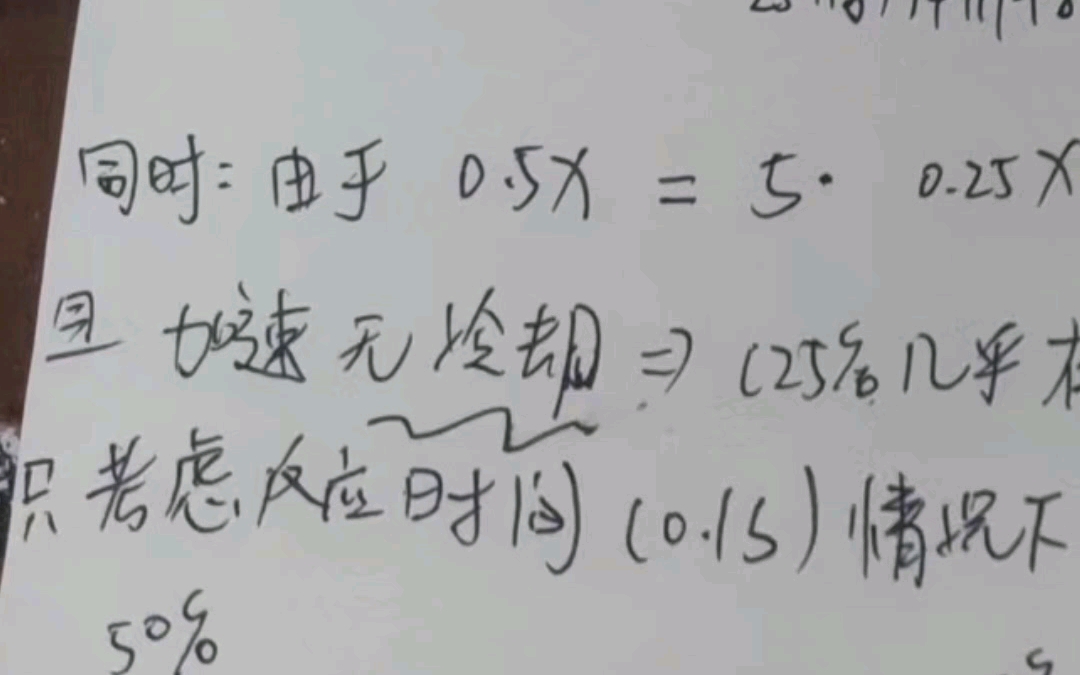 同时：由于 0.5X = 5· 0.25X
且 加速无冷却 => (25% 几乎
只考虑反应时间(0.1s)情况下
50%